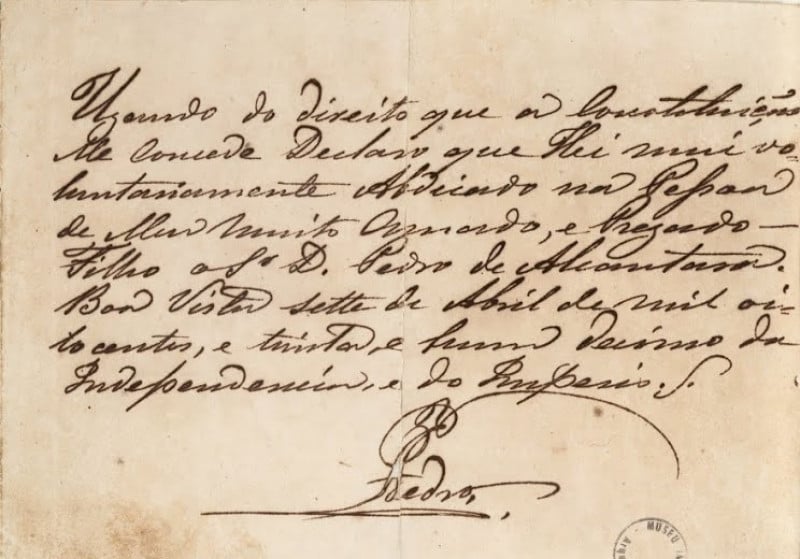 Uzando do direito que a Constituição
Me concede Declaro que Hei mui vo-
luntariamente Abdicado na Pessoa
de Meu muito Amado, e Prezado
Filho o Sr. D. Pedro de Alcantara.
Boa Vista sette de Abril de mil oi-
tocentos, e trinta, e hum decimo da
Independencia, e do Imperio.
Pedro
MUSEU